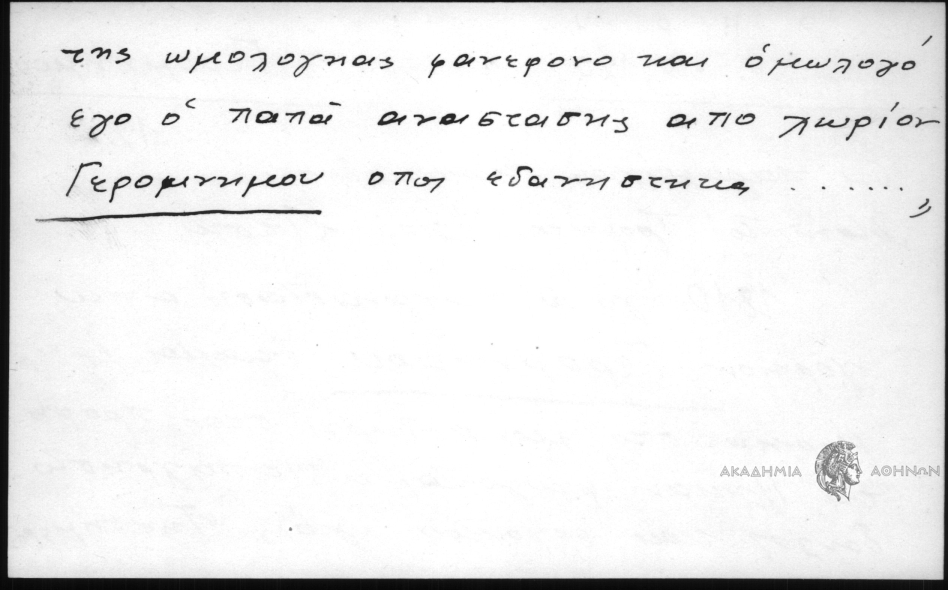 της ωμολογηας φανεφονο και ὁμωλογό
εγο ὁ παπὰ αναστασης απο χωρίον
Γερομνημου οπου εδανηστηκα .......»
ΑΚΑΔΗΜΙΑ ΑΘΗΝΩΝ